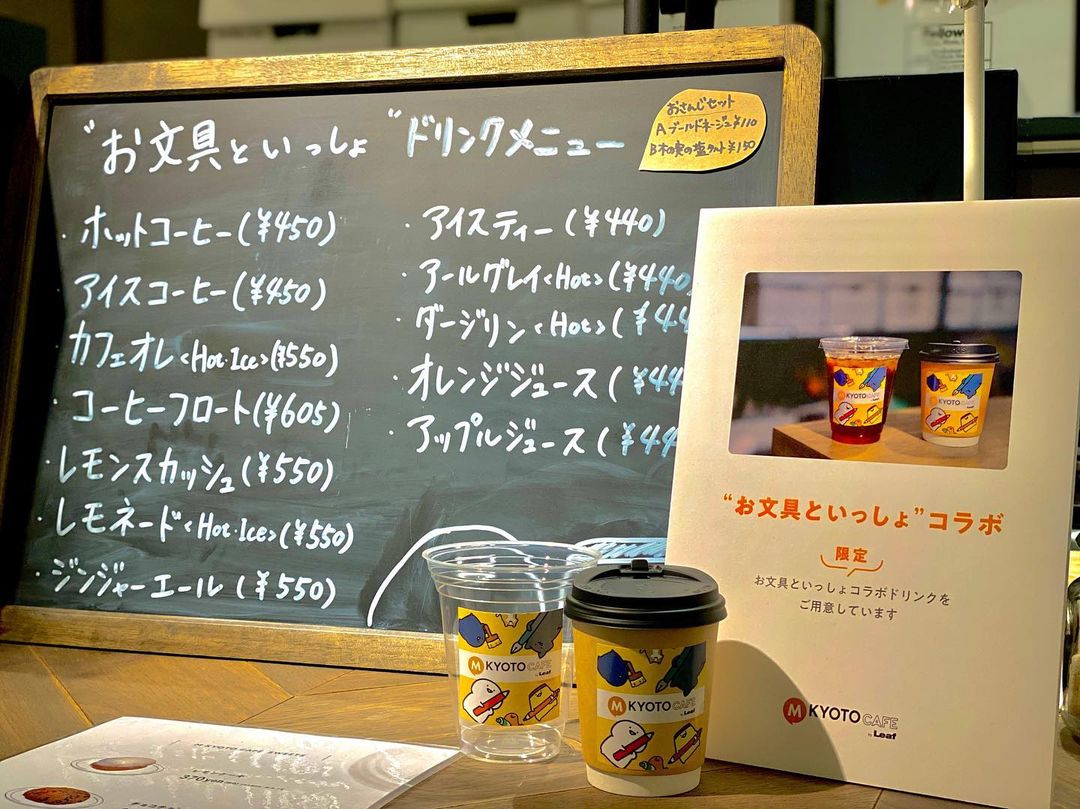 "お文具といっしょ"ドリンクメニュー
おさんじセット
Aブールドネージュ¥110
B木の実の塩タルト¥150
・ホットコーヒー(¥450)
アイスコーヒー(¥450)
カフェオレ<Hot・Ice>(¥550)
・コーヒーフロート(¥605)
・レモンスカッシュ(¥550)
・レモネード<Hot・Ice>(¥550)
・ジンジャーエール(¥550)
・アイスティー(¥440)
・アールグレイ<Hot>(¥440
・ダージリン<Hot>(¥44
・オレンジジュース(¥44
・アップルジュース(¥44
"お文具といっしょ"コラボ
限定
お文具といっしょコラボドリンクを
ご用意しています
M KYOTO CAFE
by Leaf
M KYOTO CAFE
by Leaf
M KYOTO CAFE
by Leaf
KYOTO CAFE
KYOTO CAFE
KYOTO CAFE SWEETS
370yen